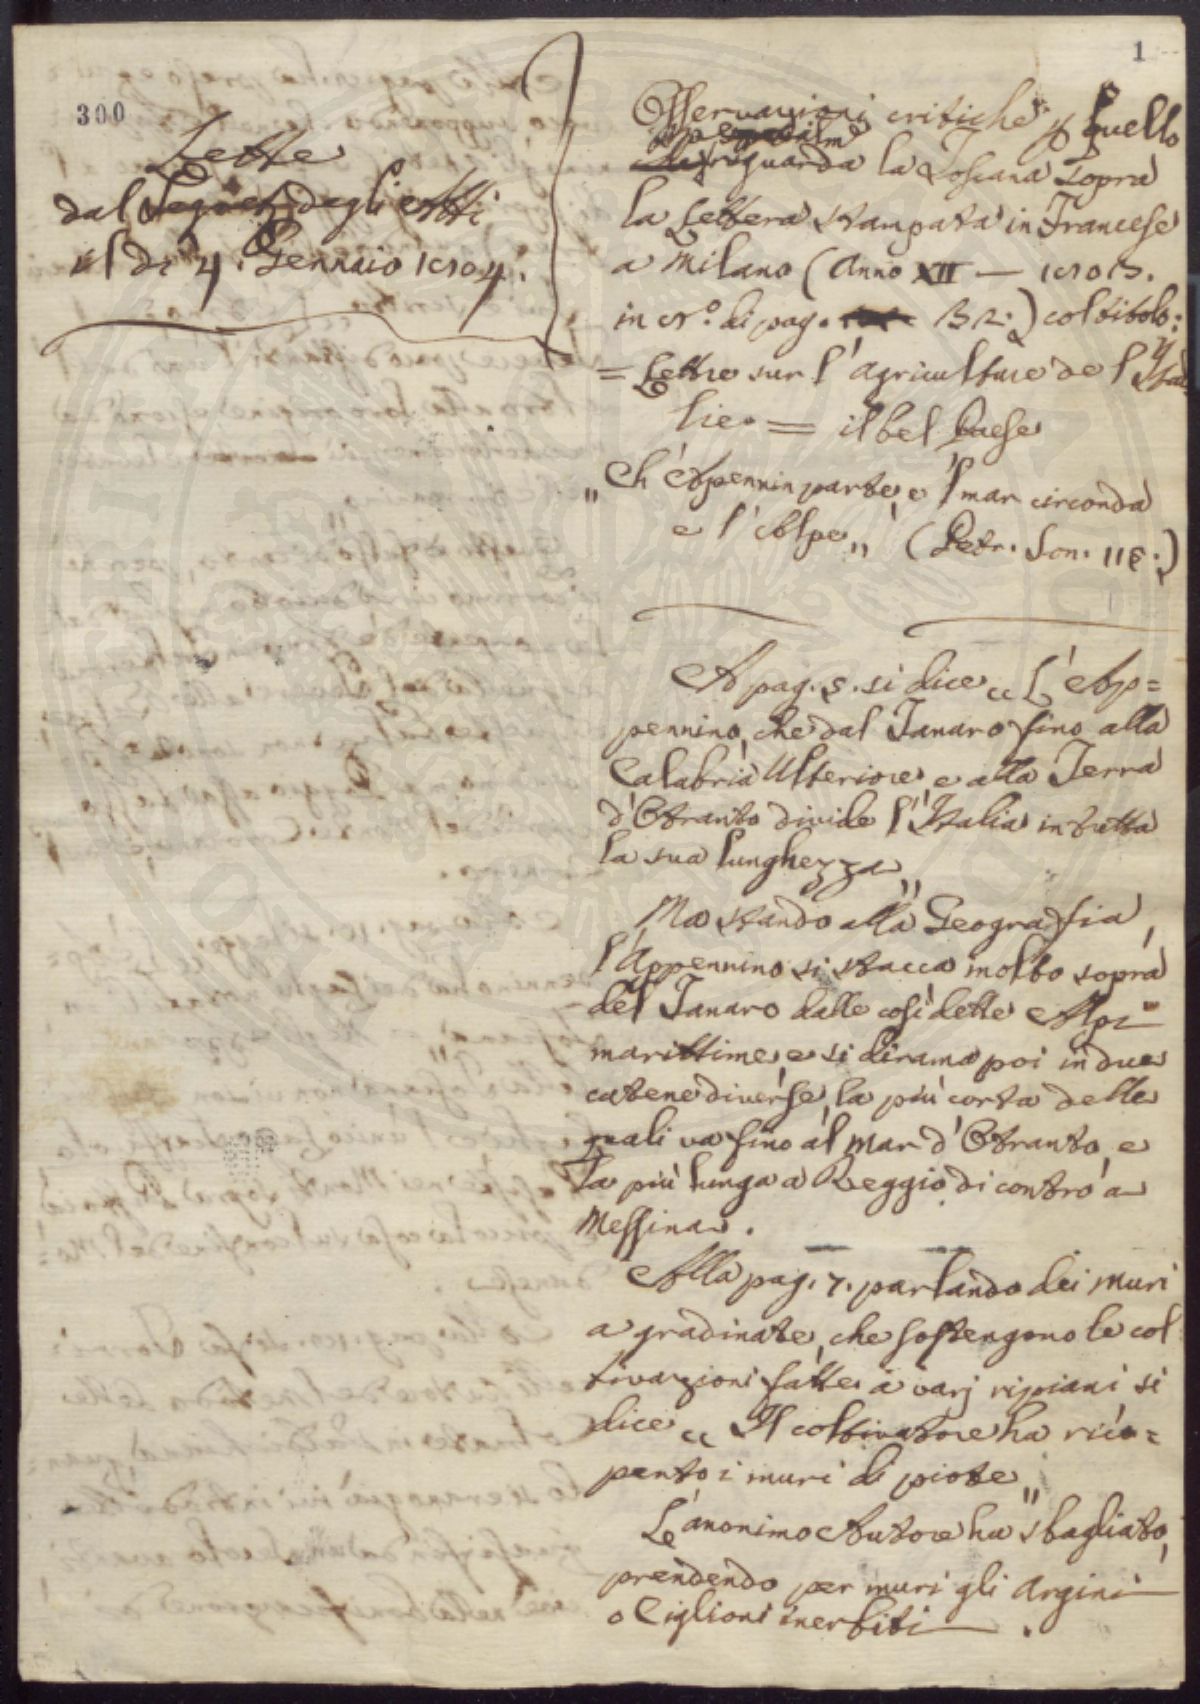 1
300
Lette
dal Segret. degli Atti
il dì 4. Gennaio 1804.
Osservazioni critiche p quello
riguarda la Toscana sopra
la Lettera stampata in Francese
a Milano (Anno XII — 1803.
in 8º. di pag. 32.) col titolo:
= Lettre sur l'agriculture de l'Ita
lie. = il bel Paese
„ Ch'Apennin parte, e 'l mar circonda
e l'Alpe „ (Petr. Son. 118.)
A pag. 5. si dice „ L'Ap=
pennino, che dal Tanaro fino alla
Calabria Ulteriore e alla Terra
d'Otranto divide l'Italia in tutta
la sua lunghezza „
Ma stando alla Geografia,
l'Appennino si stacca molto sopra
del Tanaro dalle così dette Alpi
marittime, e si dirama poi in due
catene diverse, la più corta delle
quali va fino al mar d'Otranto, e
la più lunga a Reggio di contro a
Messina.
Alla pag. 7. parlando dei muri
a gradinate, che sostengono le col
tivazioni fatte a varj ripiani si
dice „ Il coltivatore ha rico=
perto i muri di piote „
L'anonimo Autore ha sbagliato,
prendendo per muri gli argini
o Ciglioni inerbiti.